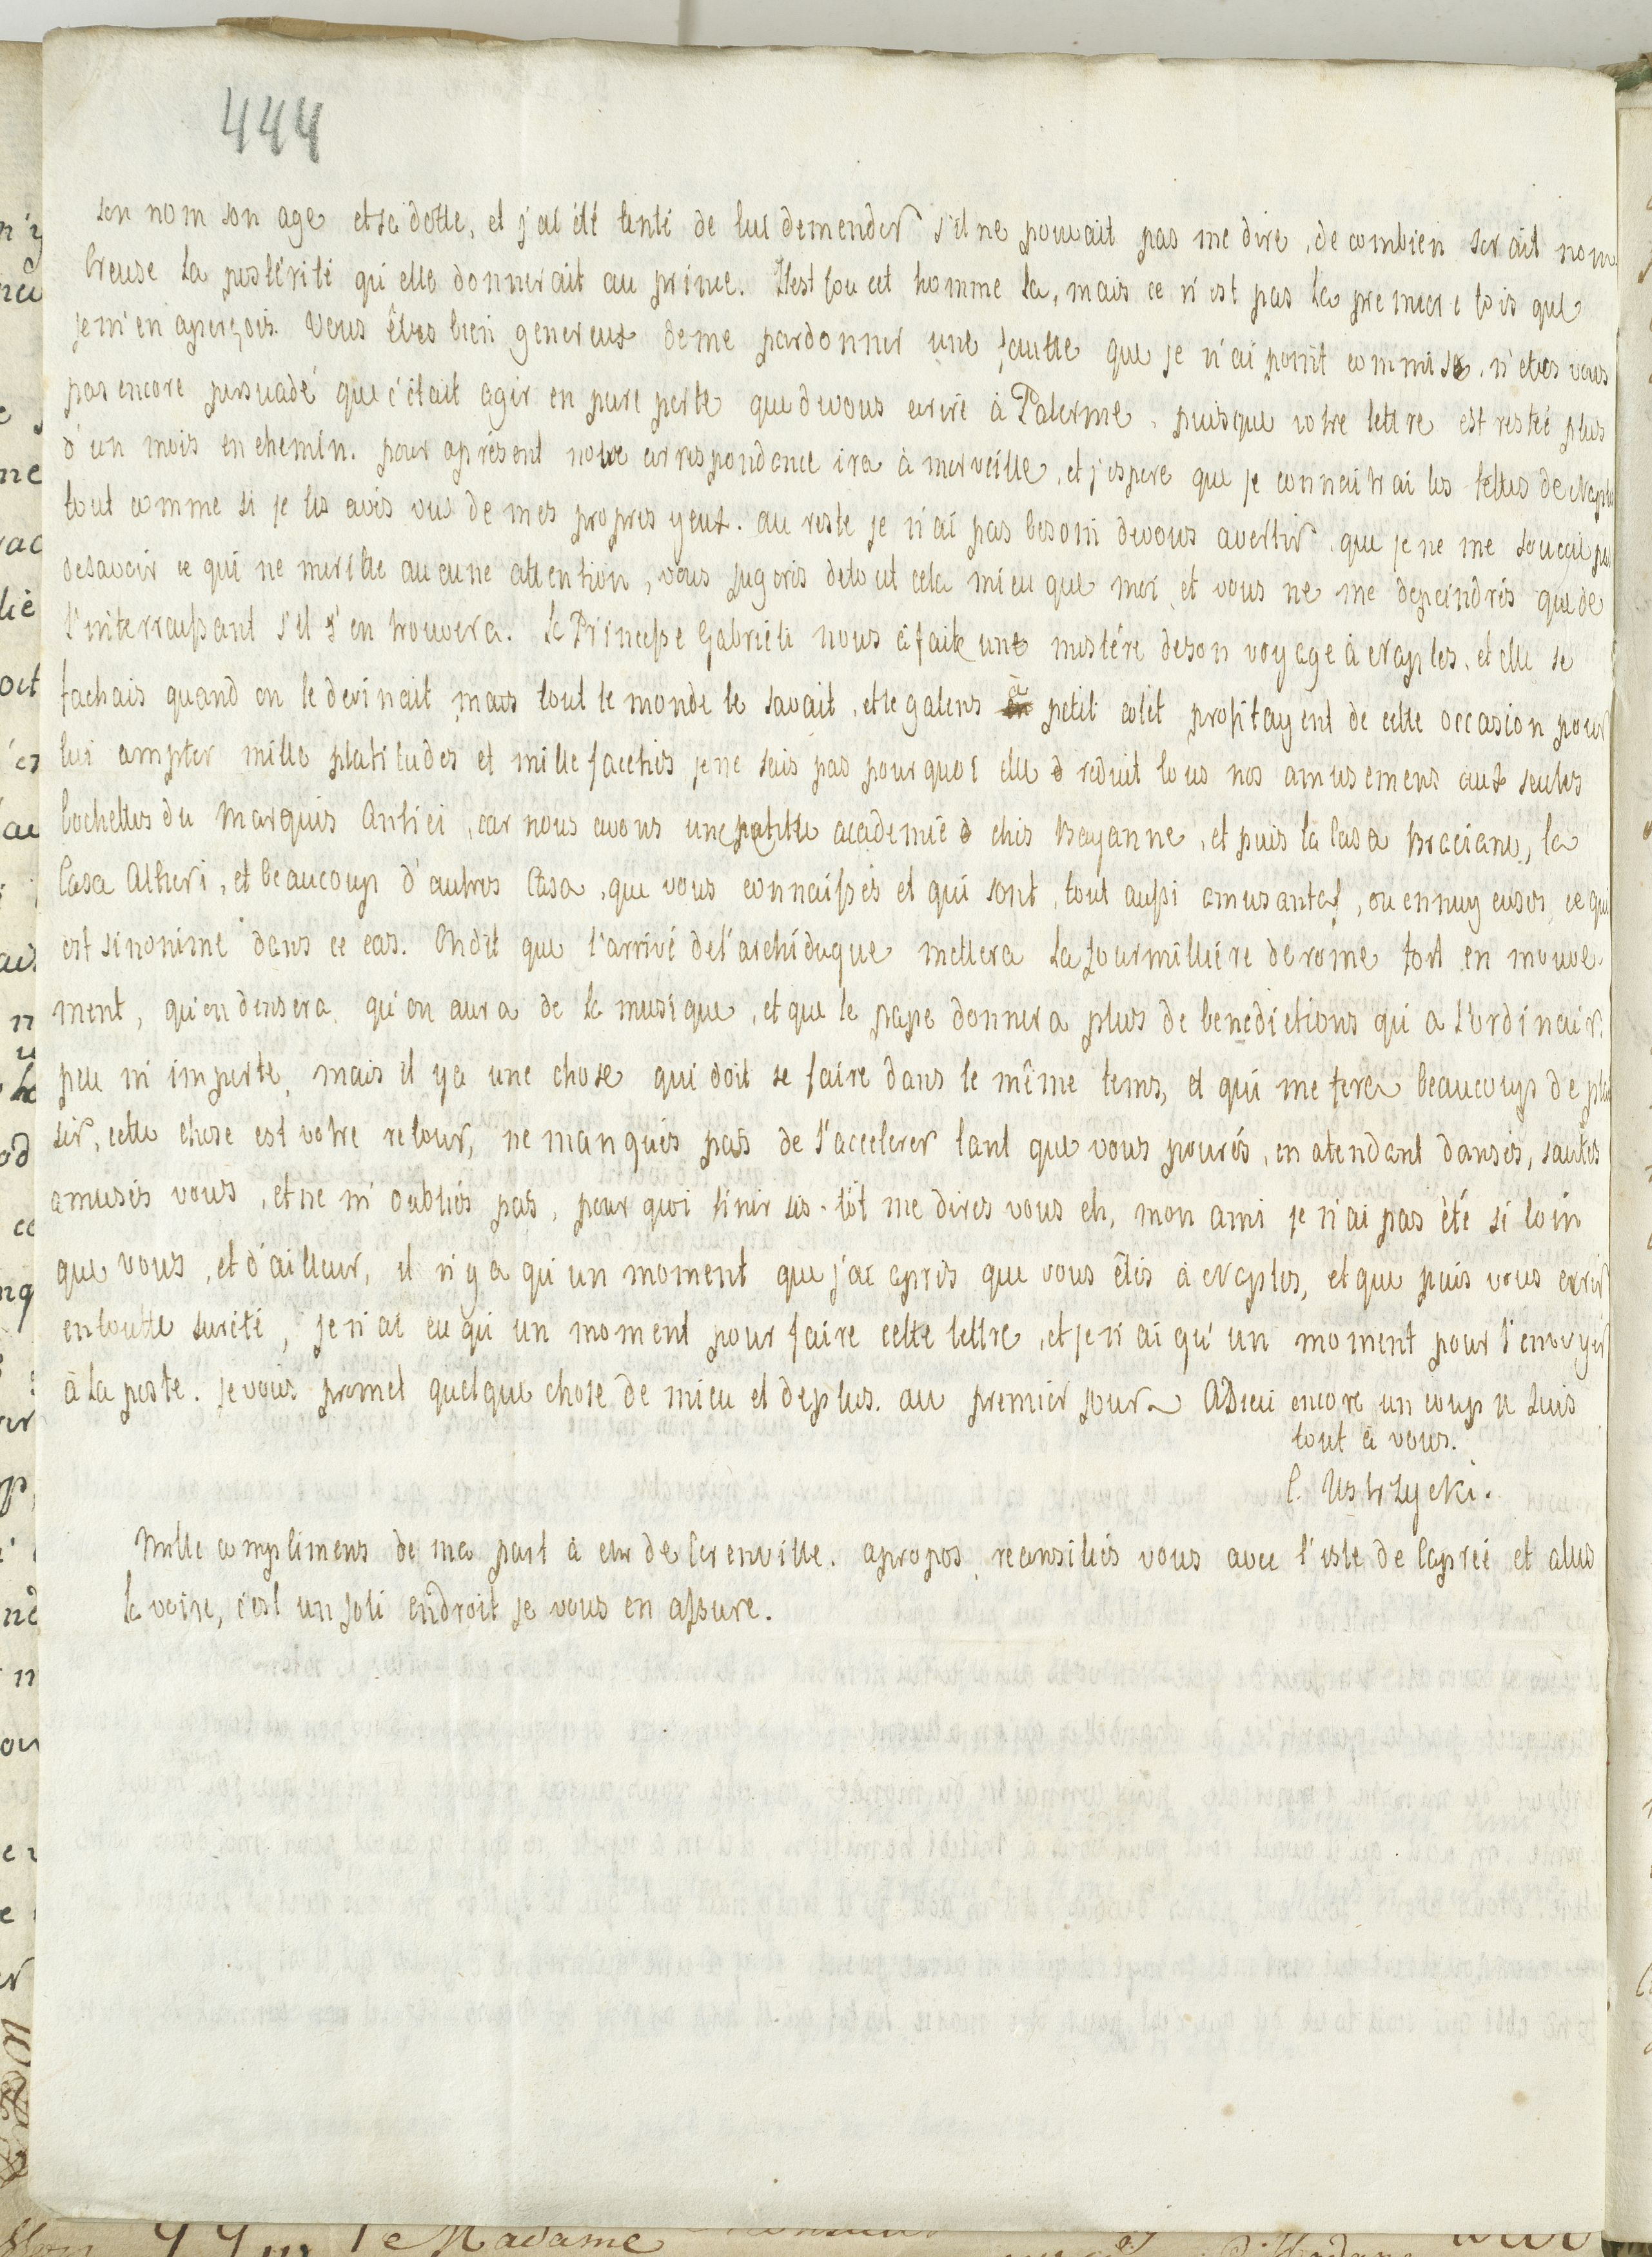 444
son nom son age et sa dotte, et j'ai été tenté de lui demender s'il ne pouvait pas me dire, de combien serait nom
breuse la postérité qu'elle donnerait au prince. Il est fou cet homme la, mais ce n'est pas la premiere fois que
je m'en aperçois. Vous êtes bien genereux de me pardonner une fautte que je n'ai point commise, n'etes vous
pas encore persuadé que c'était agir en pure perte que de vous ecrire à Palerme, puisque votre lettre est restée plus
d'un mois en chemin. pour apresent notre correspondance ira à merveille, et j'espere que je connaitrai les fettes de Naples
tout comme si je les avois vu de mes propres yeux. au reste je n'ai pas besoin de vous avertir, que je ne me souciai pas
de savoir ce qui ne meritte aucune attention, vous jugerés de tout cela mieu que moi, et vous ne me depeindrés que de
l'interressant s'il s'en trouvera. La Princesse Gabriéli nous à faite une mistére de son voyage à Naples, et elle se
fachais quand on le devinait mais tout le monde le savait, et le galens en petit colèt profitayent de cette occasion pour
lui ampter mille platitudes et mille facethies je ne sais pas pourquoi elle à reduit tous nos amusemens aux seules
bochettes du Marquis Antici, car nous avons une petitte academie chés Bayanne, et puis la Casa Braciano, la
Casa Altieri, et beaucoup d'autres Casa, que vous connaissés et qui sont, tout aussi amusantes, ou ennuyeuses, ce qui
est sinonime dans ce cas. On dit que l'arrivé de l'archiduque mettera la fourmilliére de rome fort en mouve
ment, qu'on densera qu'on aura de la musique, et que le pape donnera plus de benedictions qu'a l'ordinair.
peu m'importe, mais il y a une chose qui doit se faire dans le même tems, et qui me fera beaucoup de plai
sir, cette chose est votre retour, ne manqués pas de l'accelerer tant que vous pourés, en atendant dansés, sautés
amusés vous, et ne m'oubliés pas, pour quoi finir sis-tôt me dires vous eh, mon ami je n'ai pas été si loin
que vous, et d'ailleur, il n'y a qu'un moment que j'ai apris que vous êtes à Naples, et que puis vous ecrir
en toutte sureté, je n'ai eu qu'un moment pour faire cette lettre, et je n'ai qu'un moment pour l'envoyer
à la poste. je vous promet quelque chose de mieu et de plus. au premier jour Adieu encore un coup je suis
tout à vous.
C. Ustrzycki.
Mille complimens de ma part à de Cerenville. apropos, reconsiliés vous avec l'isle de Caprée et alés
la voire, c'est un joli endroit je vous en assure.